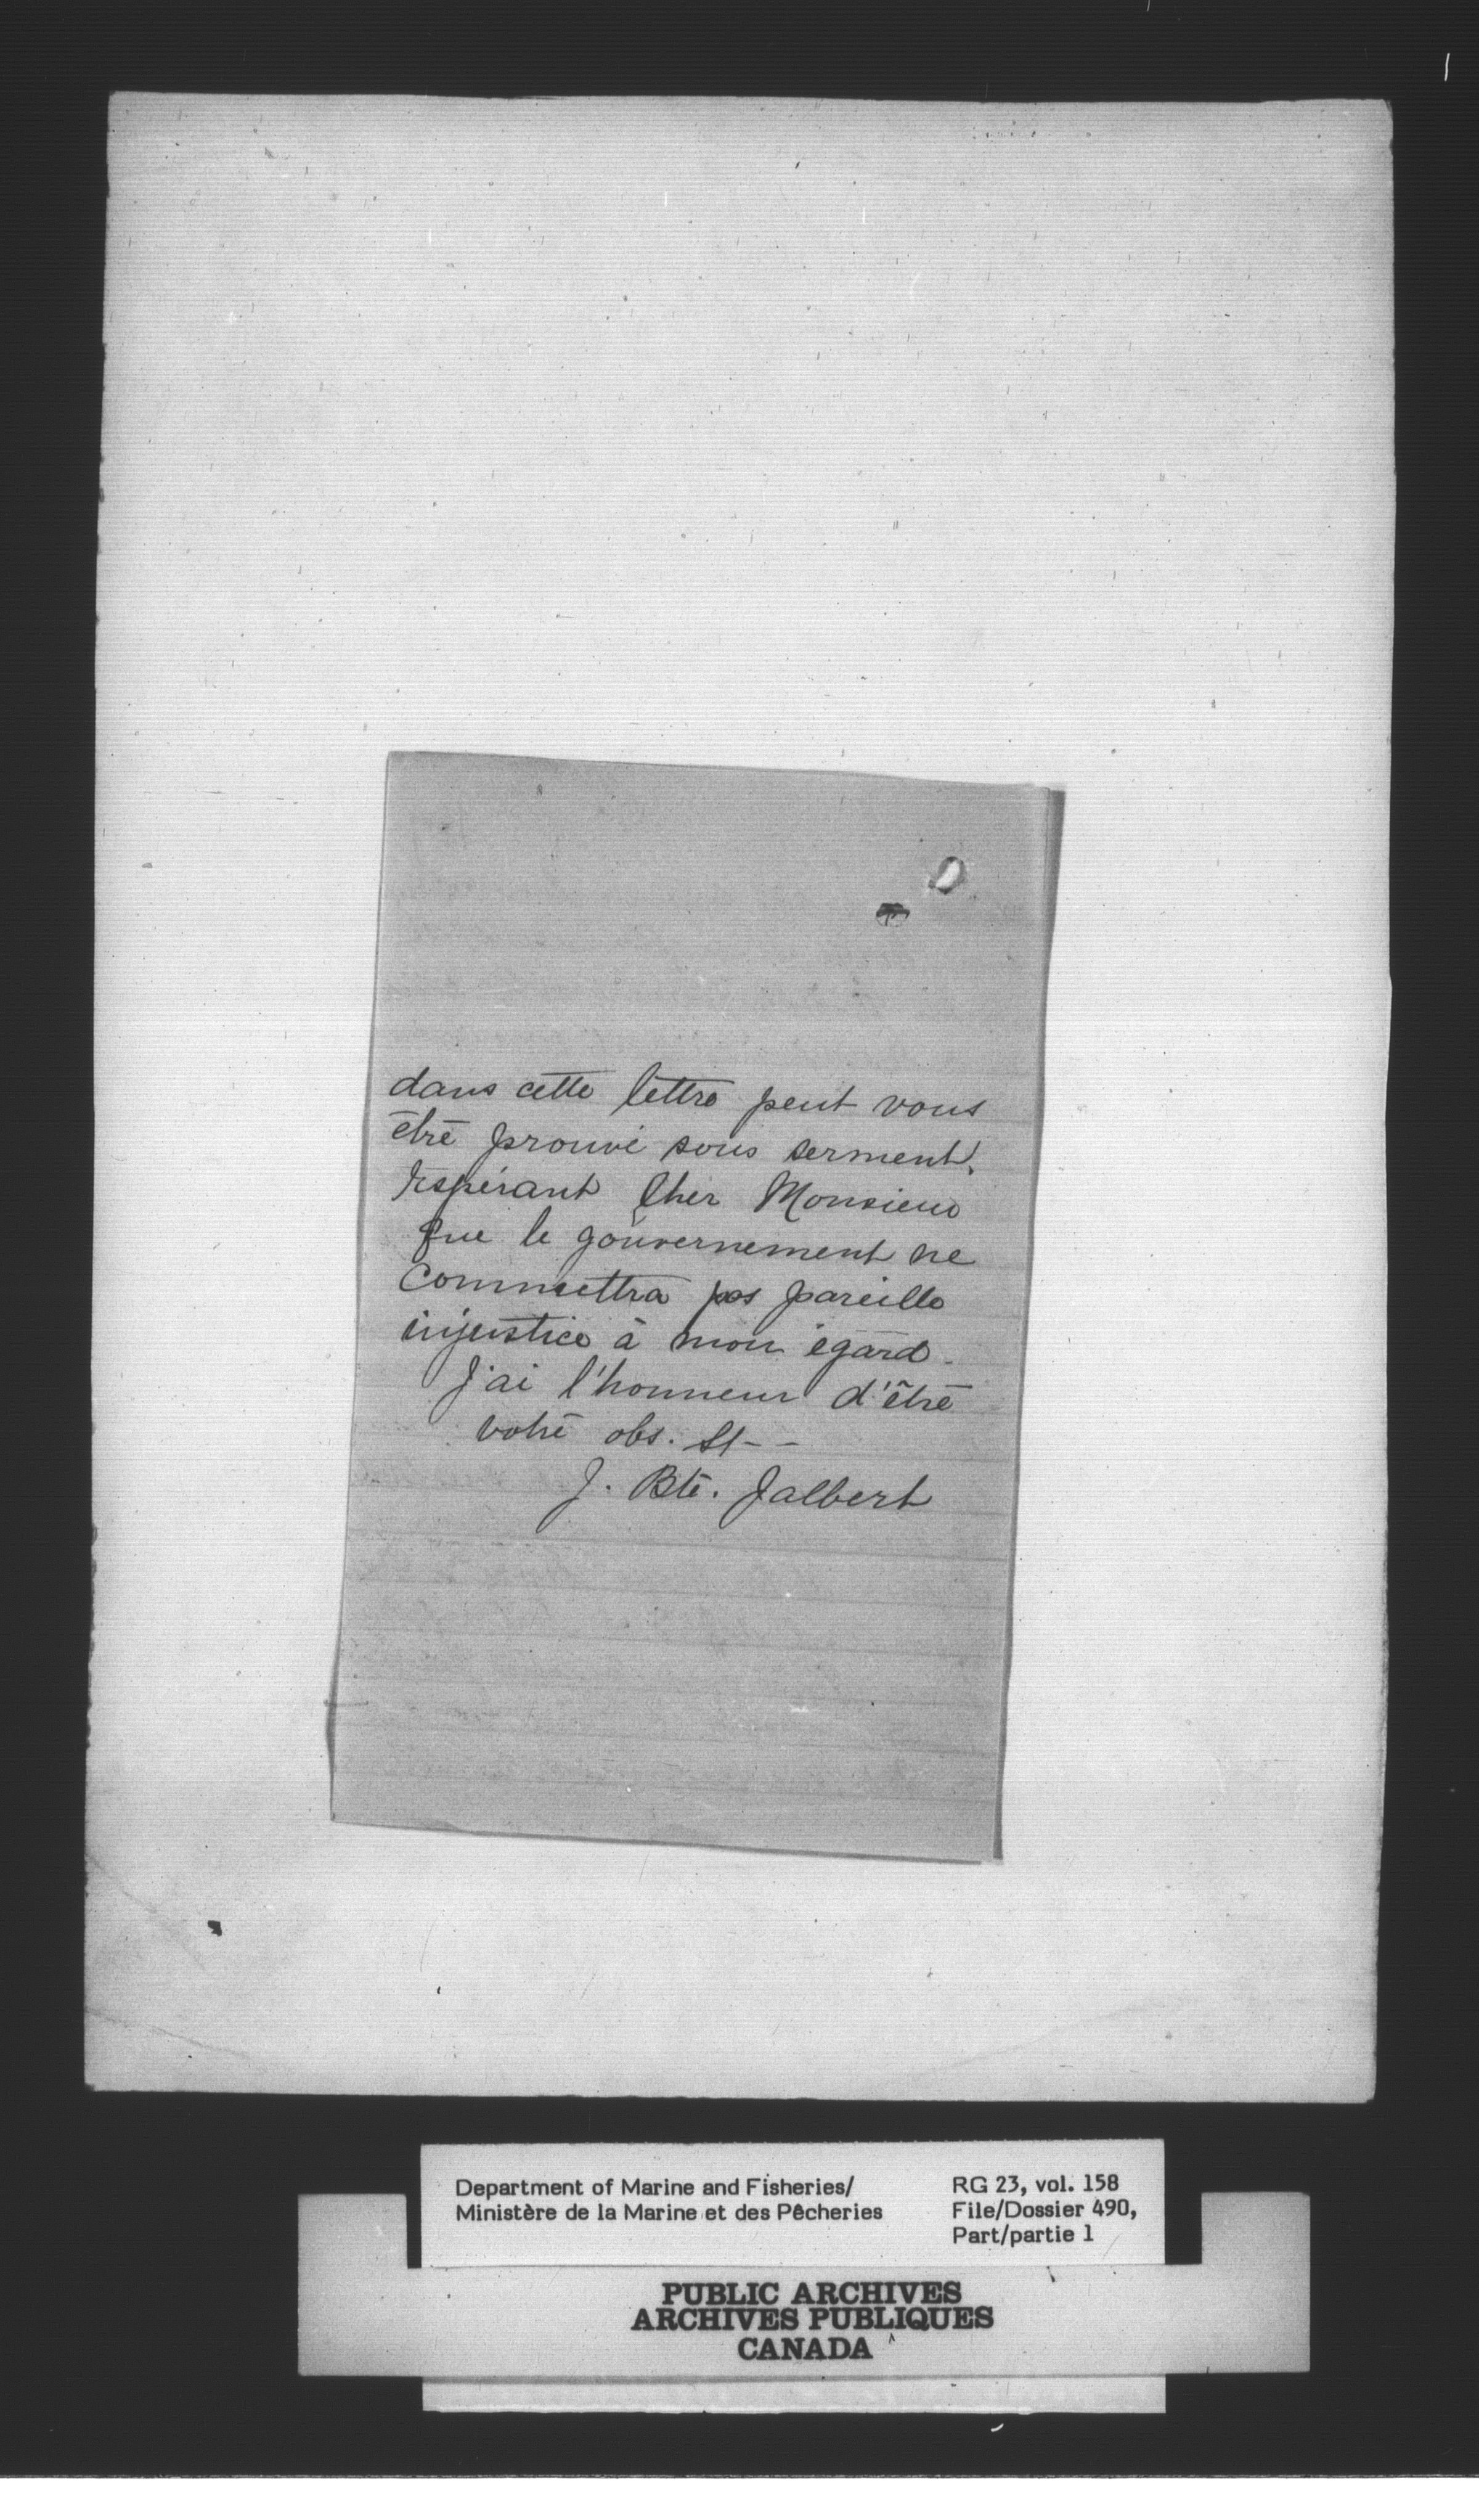 dans cette lettre peut vous
être prouvé sous serment.
Espérant Cher Monsieur
que le gouvernement ne
commettra pas pareille
injustice à mon égard.
J'ai l'honneur d'être
votre obs. St--
J. Bte. Jalbert
Department of Marine and Fisheries/
Ministère de la Marine et des Pêcheries
RG 23, vol. 158
File/Dossier 490,
Part/partie 1
PUBLIC ARCHIVES
ARCHIVES PUBLIQUES
CANADA